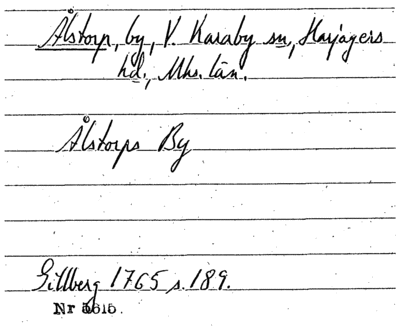 Ålstorp, by, V. Karaby sn, Harjagers
hd., Mhs. län.
Ålstorps By
Gillberg 1765 s. 189.
Nr